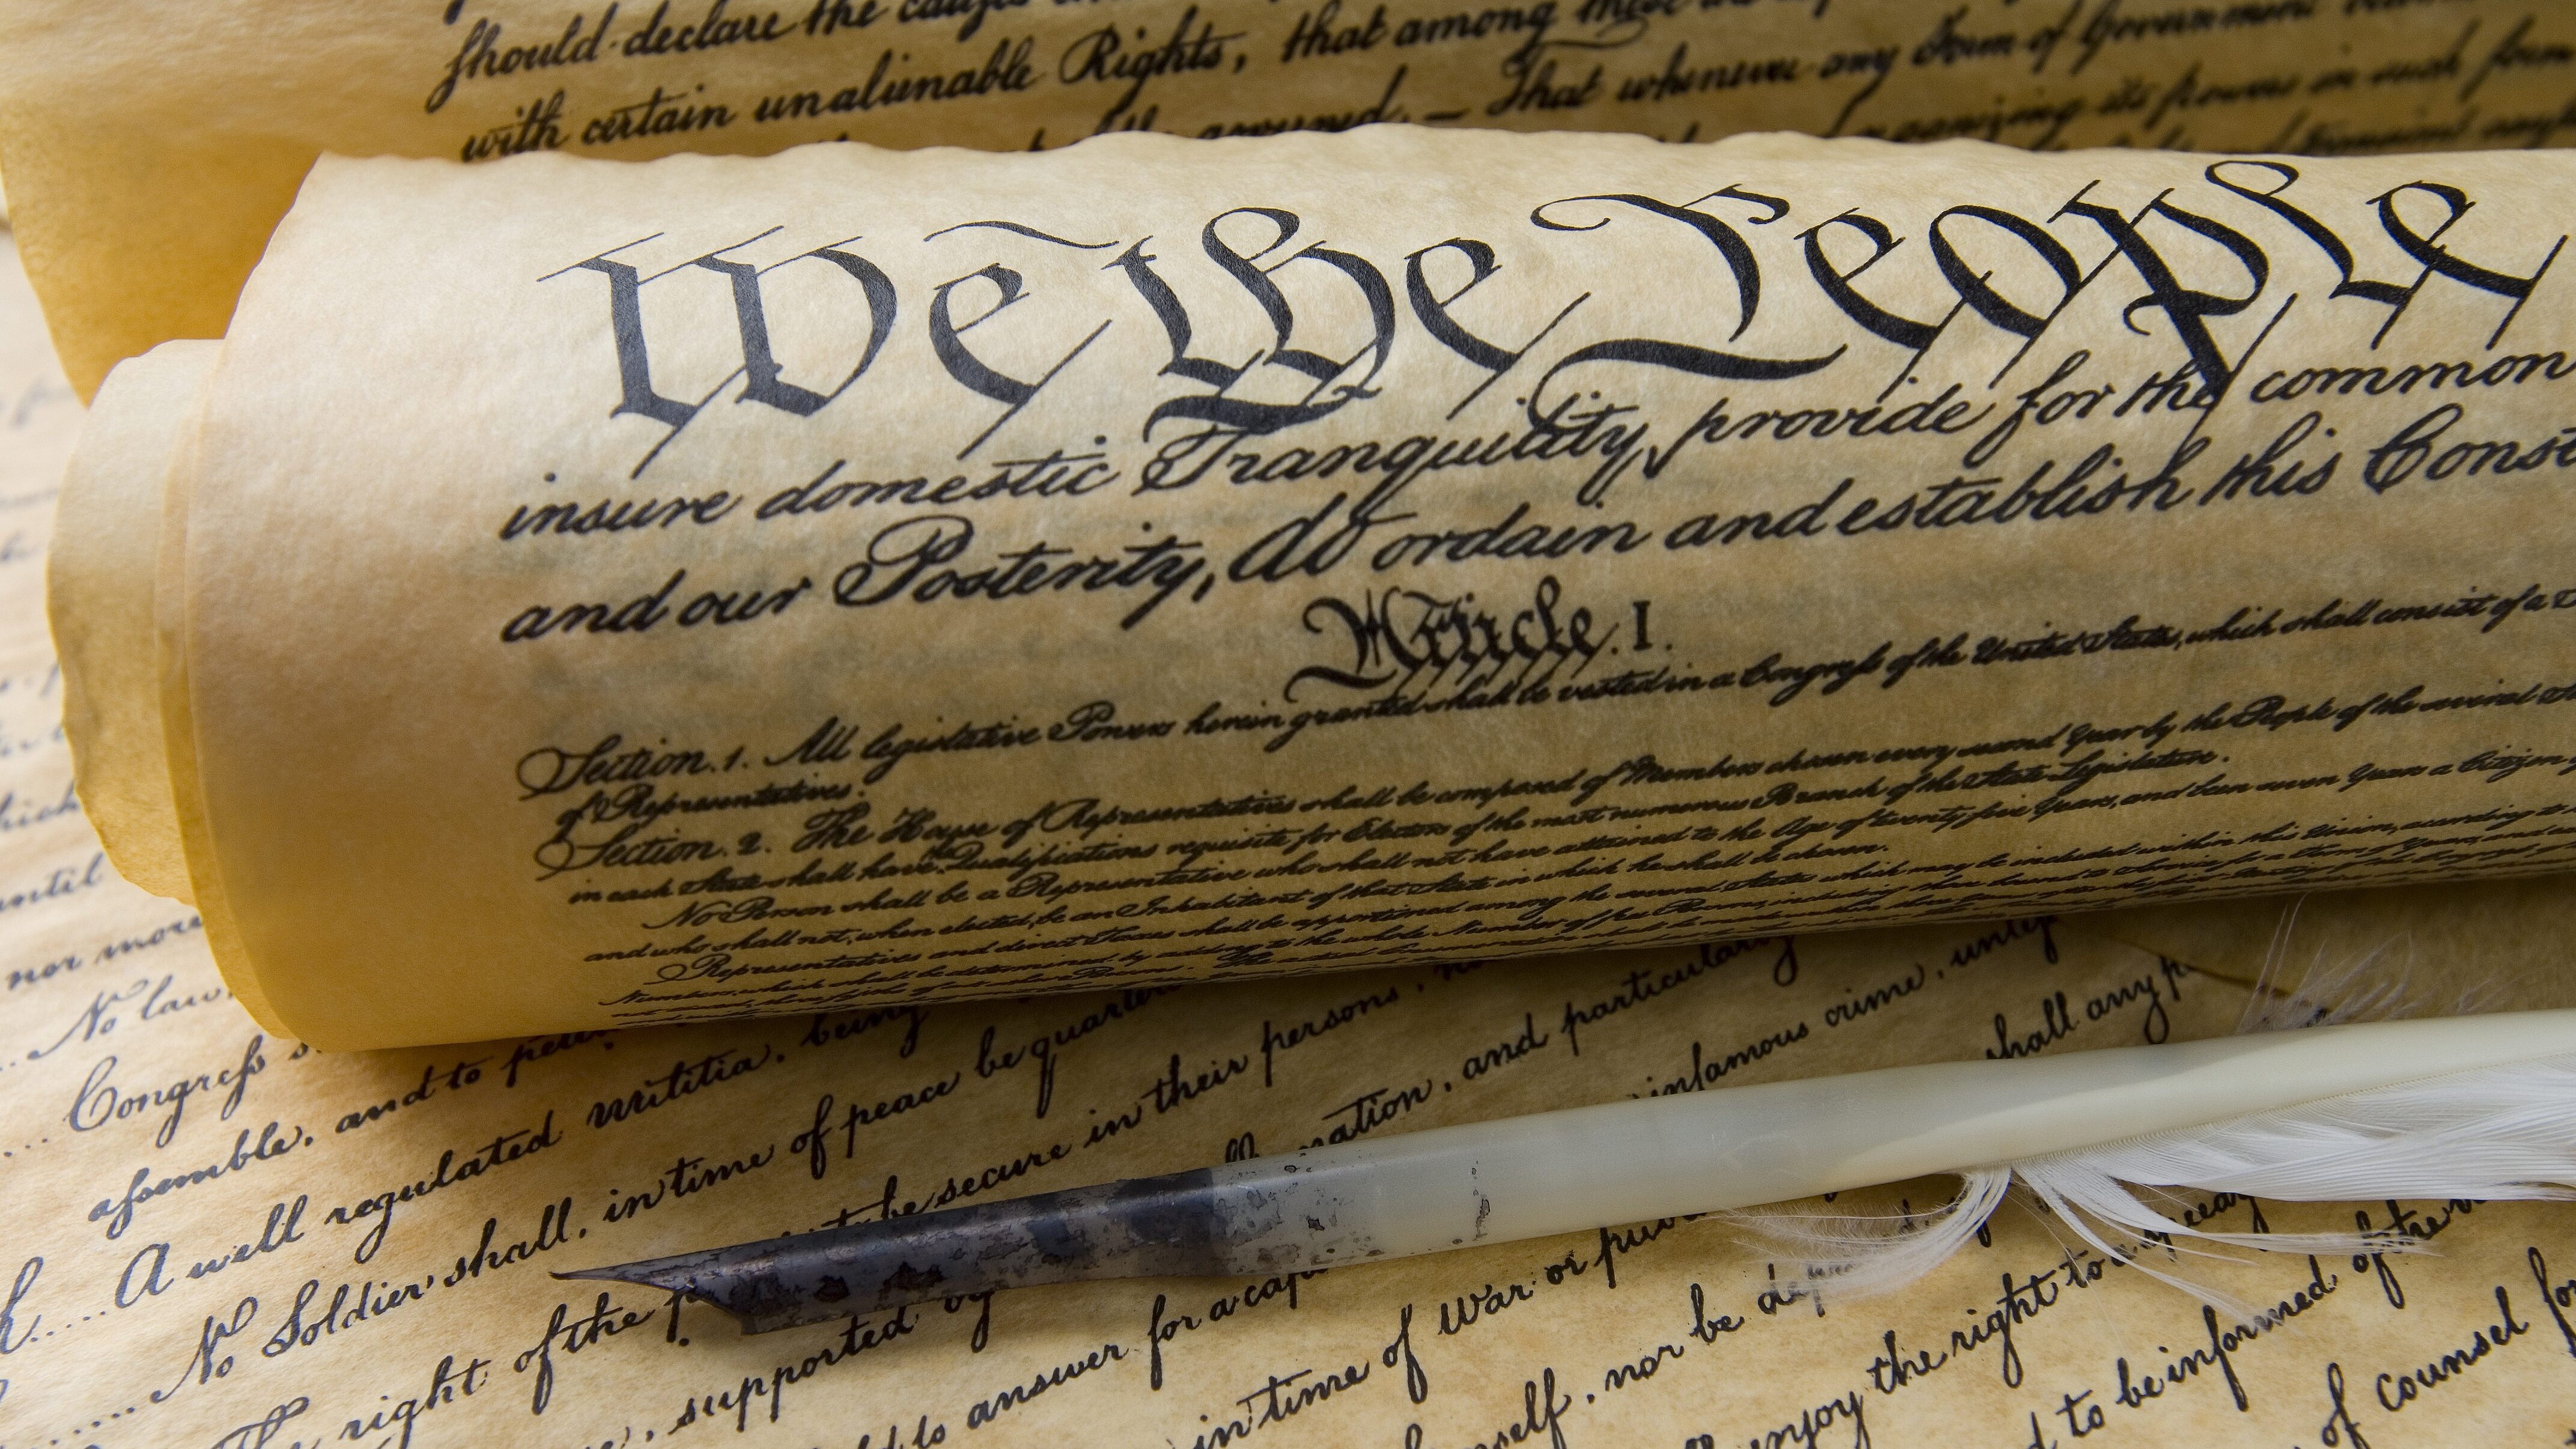 should declare the causes
with certain unalienable Rights, that among these
assured. — That whenever any Form of Government
organizing its powers in such form
We the People
insure domestic Tranquility, provide for the common
and our Posterity, do ordain and establish this Const
Article. I.
Section. 1. All legislative Powers herein granted shall be vested in a Congress of the United States, which shall consist of a
of Representatives.
Section. 2. The House of Representatives shall be composed of Members chosen every second Year by the People of the several
in each State shall have the Qualifications requisite for Electors of the most numerous Branch of the State Legislature.
No Person shall be a Representative who shall not have attained to the Age of twenty five Years, and been seven Years a Citizen
and who shall not, when elected, be an Inhabitant of that State in which he shall be chosen.
Representatives and direct Taxes shall be apportioned among the several States which may be included within this Union, according to
Numbers, which shall be determined by adding to the whole Number of free Persons, including those bound to Service for a Term of Years, and
until
nor more
No law,
Congress s
assemble, and to peti
A well regulated militia, being
No Soldier shall, in time of peace be quarter
The right of the p to be secure in their persons,
supported by nation, and particularly
to answer for a cap infamous crime, unless
in time of War or pu shall any p
self, nor be dep
enjoy the right to a speedy
d to be informed of the n
of counsel for